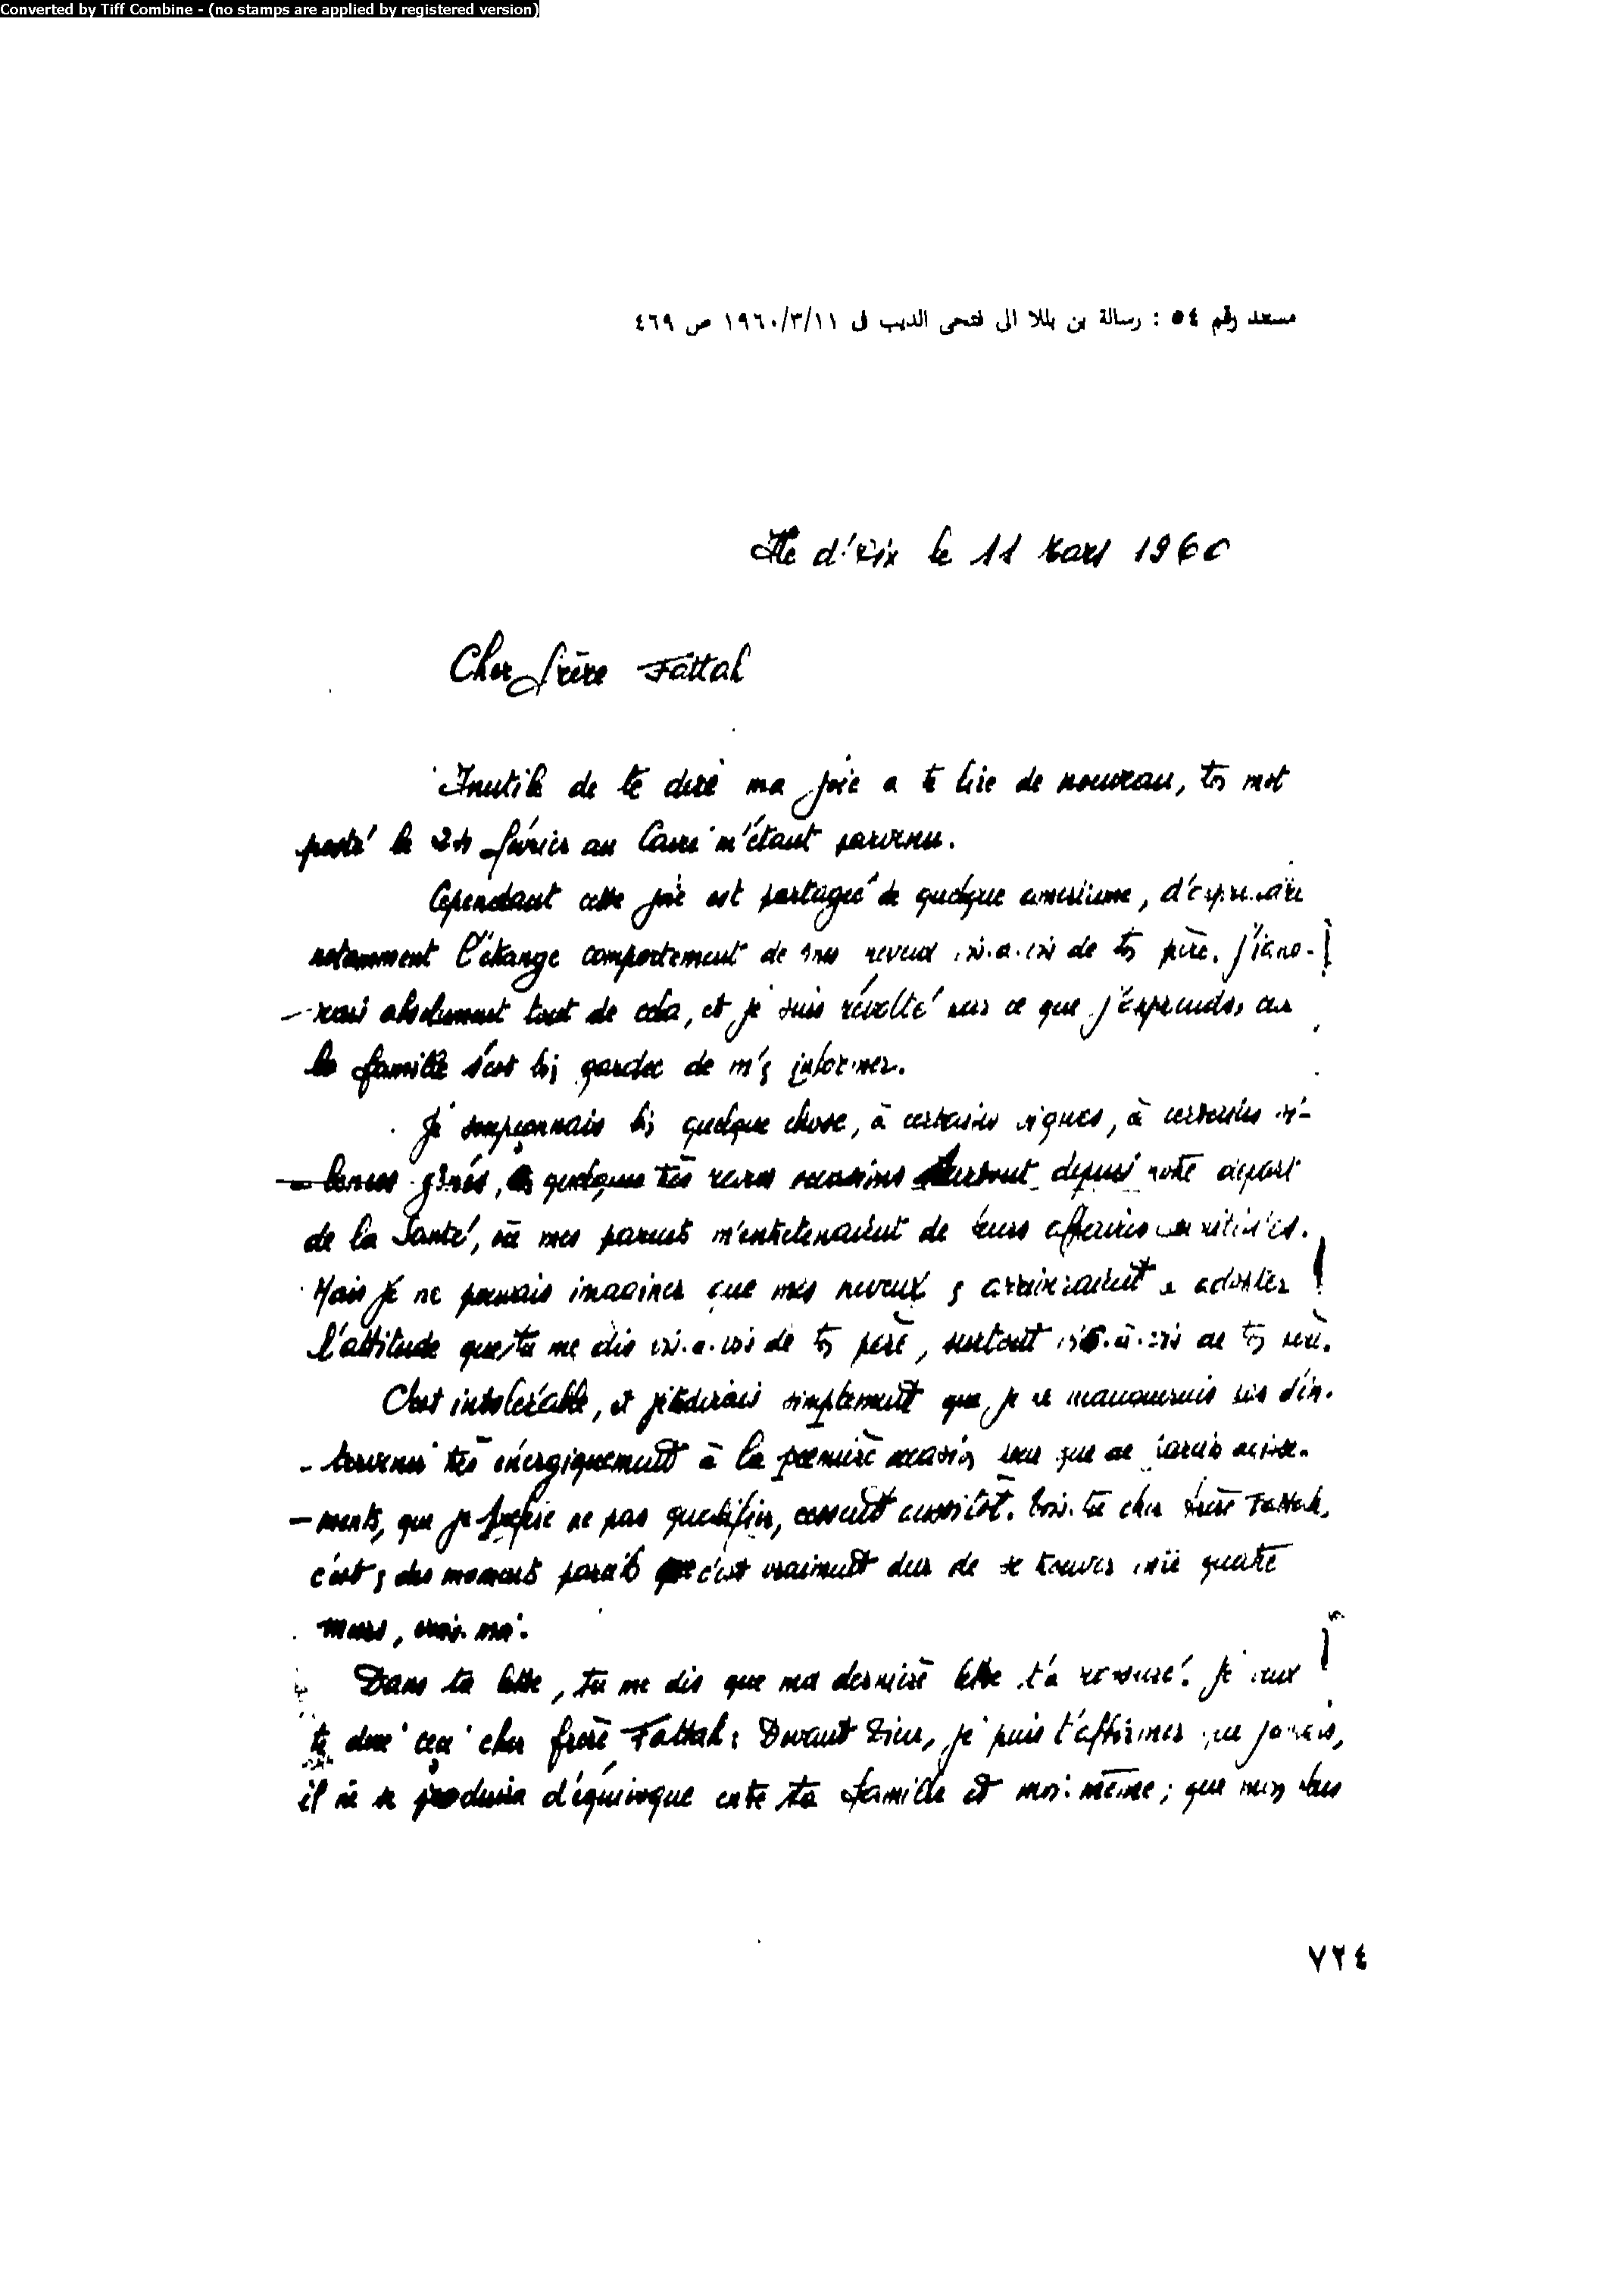 Converted by Tiff Combine - (no stamps are applied by registered version)
رقم ٥٤ : رسالة بن بللا الى فتحى الديب فى ١٩٦٠/٣/١١ ص ٤٦٩
Ile d'Aix le 11 Mars 1960
Cher frère Fattah
Inutile de te dire ma joie a te lire de nouveau, ton mot
posté le février au Caire m'étant parvenu.
Cependant cette joie est partagée de quelque amertume, d'apprendre
notamment l'étrange comportement de mes neveux vis.a.vis de ton père. J'igno-
-rais absolument tout de cela, et je suis révolté par ce que j'apprends, car
la famille s'est bien gardée de m'en informer.
Je soupçonnais bien quelque chose, à certains signes, à certains si-
-lences gênés, quelques très rares occasions surtout depuis notre départ
de la Santé, où mes parents m'entretenaient de leurs affaires
Mais je ne pouvais imaginer que mes neveux en arriveraient a adopter
l'attitude que tu me dis vis.a.vis de ton père, surtout vis.à.vis de ton père.
C'est intolérable, et je te dirais simplement que je ne manquerais pas d'in-
-tervenir très énergiquement à la première occasion pour que de
-ments, que je préfère ne pas qualifier, cessent aussitôt. Vois.tu cher frère Fattah,
c'est en des moments pareils que c'est vraiment dur de se trouver entre quatre
murs, crois.moi.
Dans ta lettre, tu me dis que ma dernière lettre t'a rassuré. Je veux
te dire ceci cher frère Fattah: Devant Dieu, je puis t'affirmer que jamais,
il ne se produira d'équivoque entre ta famille et moi.même; que mon
٧٢٤